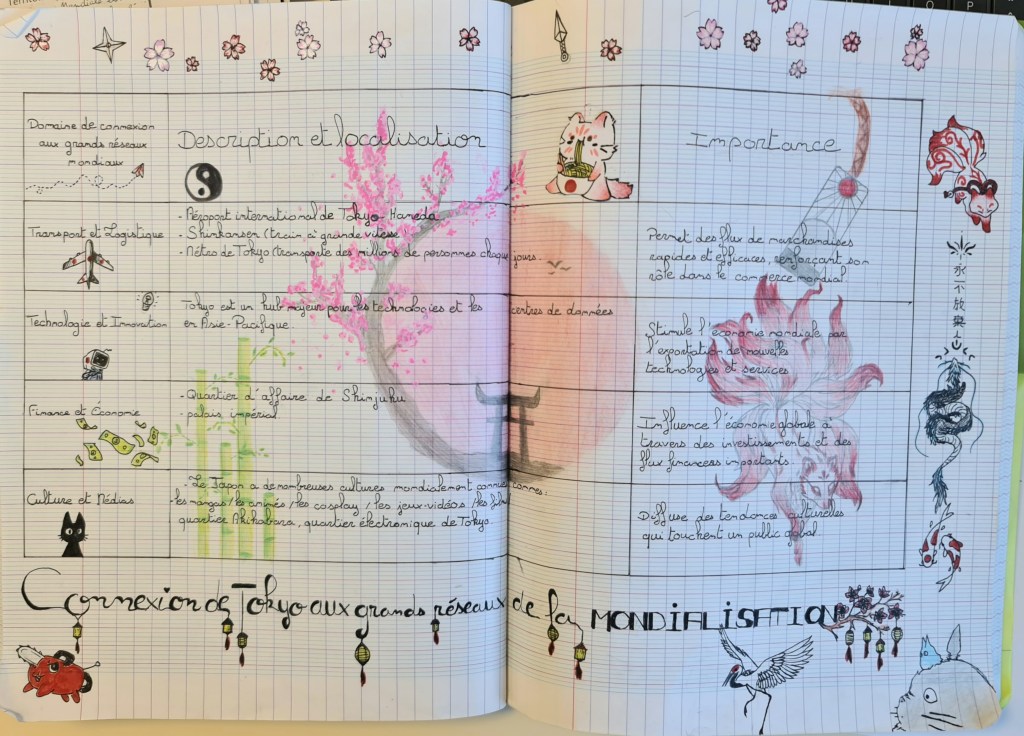 Domaine de connexion
aux grands réseaux
mondiaux
Description et localisation
Importance
Transport et Logistique
- Aéroport international de Tokyo-Haneda
- Shinkansen (train à grande vitesse
- Métro de Tokyo (transporte des millions de personnes chaque jours.
Permet des flux de marchandises
rapides et efficaces, renforçant son
rôle dans le commerce mondial.
Technologie et Innovation
Tokyo est un hub majeur pour les technologies et les centres de données
en Asie-Pacifique.
Stimule l'économie mondiale par
l'exportation de nouvelles
technologies et services
Finance et Économie
- Quartier d'affaire de Shinjuku
- palais impérial
Influence l'économie globale à
travers des investissements et des
flux financiers importants.
Culture et Médias
- Le Japon a de nombreuses cultures mondialement connues comme:
- les mangas / les animés / les cosplay / les jeux-vidéos / les
quartier Akihabara, quartier électronique de Tokyo.
Diffuse des tendances culturelles
qui touchent un public global.
永不放棄
Connexion de Tokyo aux grands réseaux de la MONDIALISATION